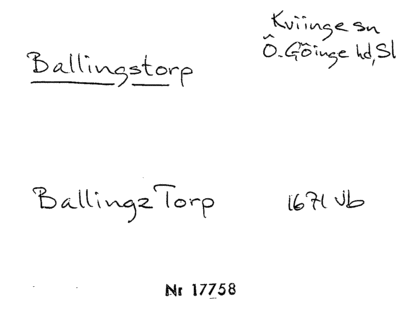 Kviinge sn
Ballingstorp
Ö. Göinge hd, Sl
Ballingz Torp
1671 Jb
Nr 17758